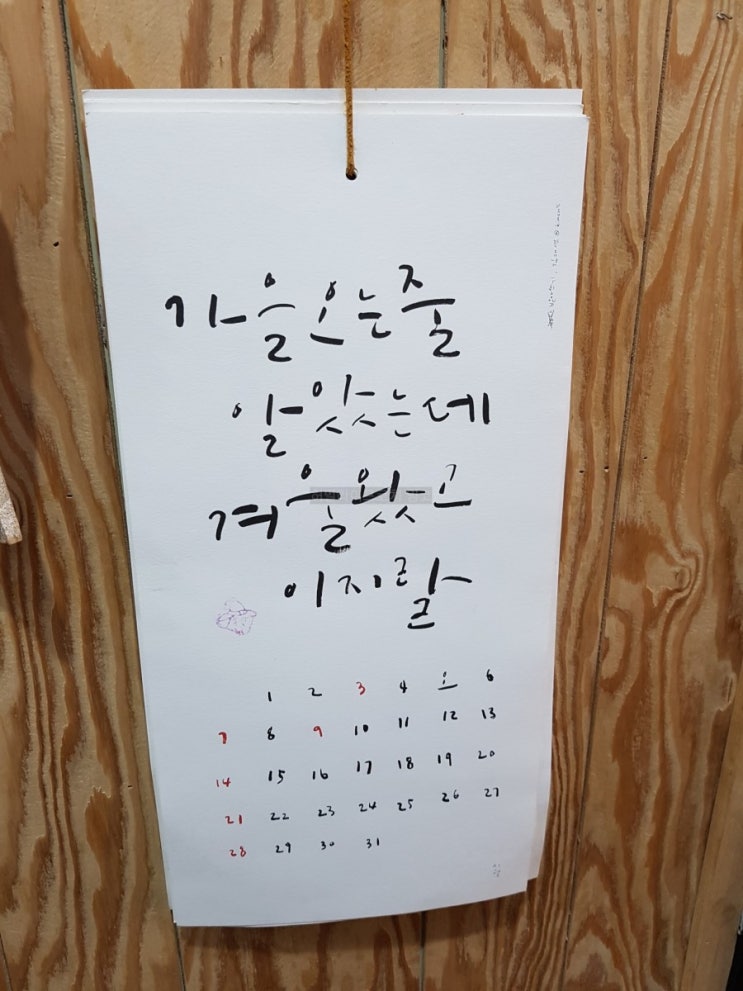 가을 오는 줄
알앗는데
겨울 왓고
이지랄
1 2 3 4 오 6
7 8 9 10 11 12 13
14 15 16 17 18 19 20
21 22 23 24 25 26 27
28 29 30 31